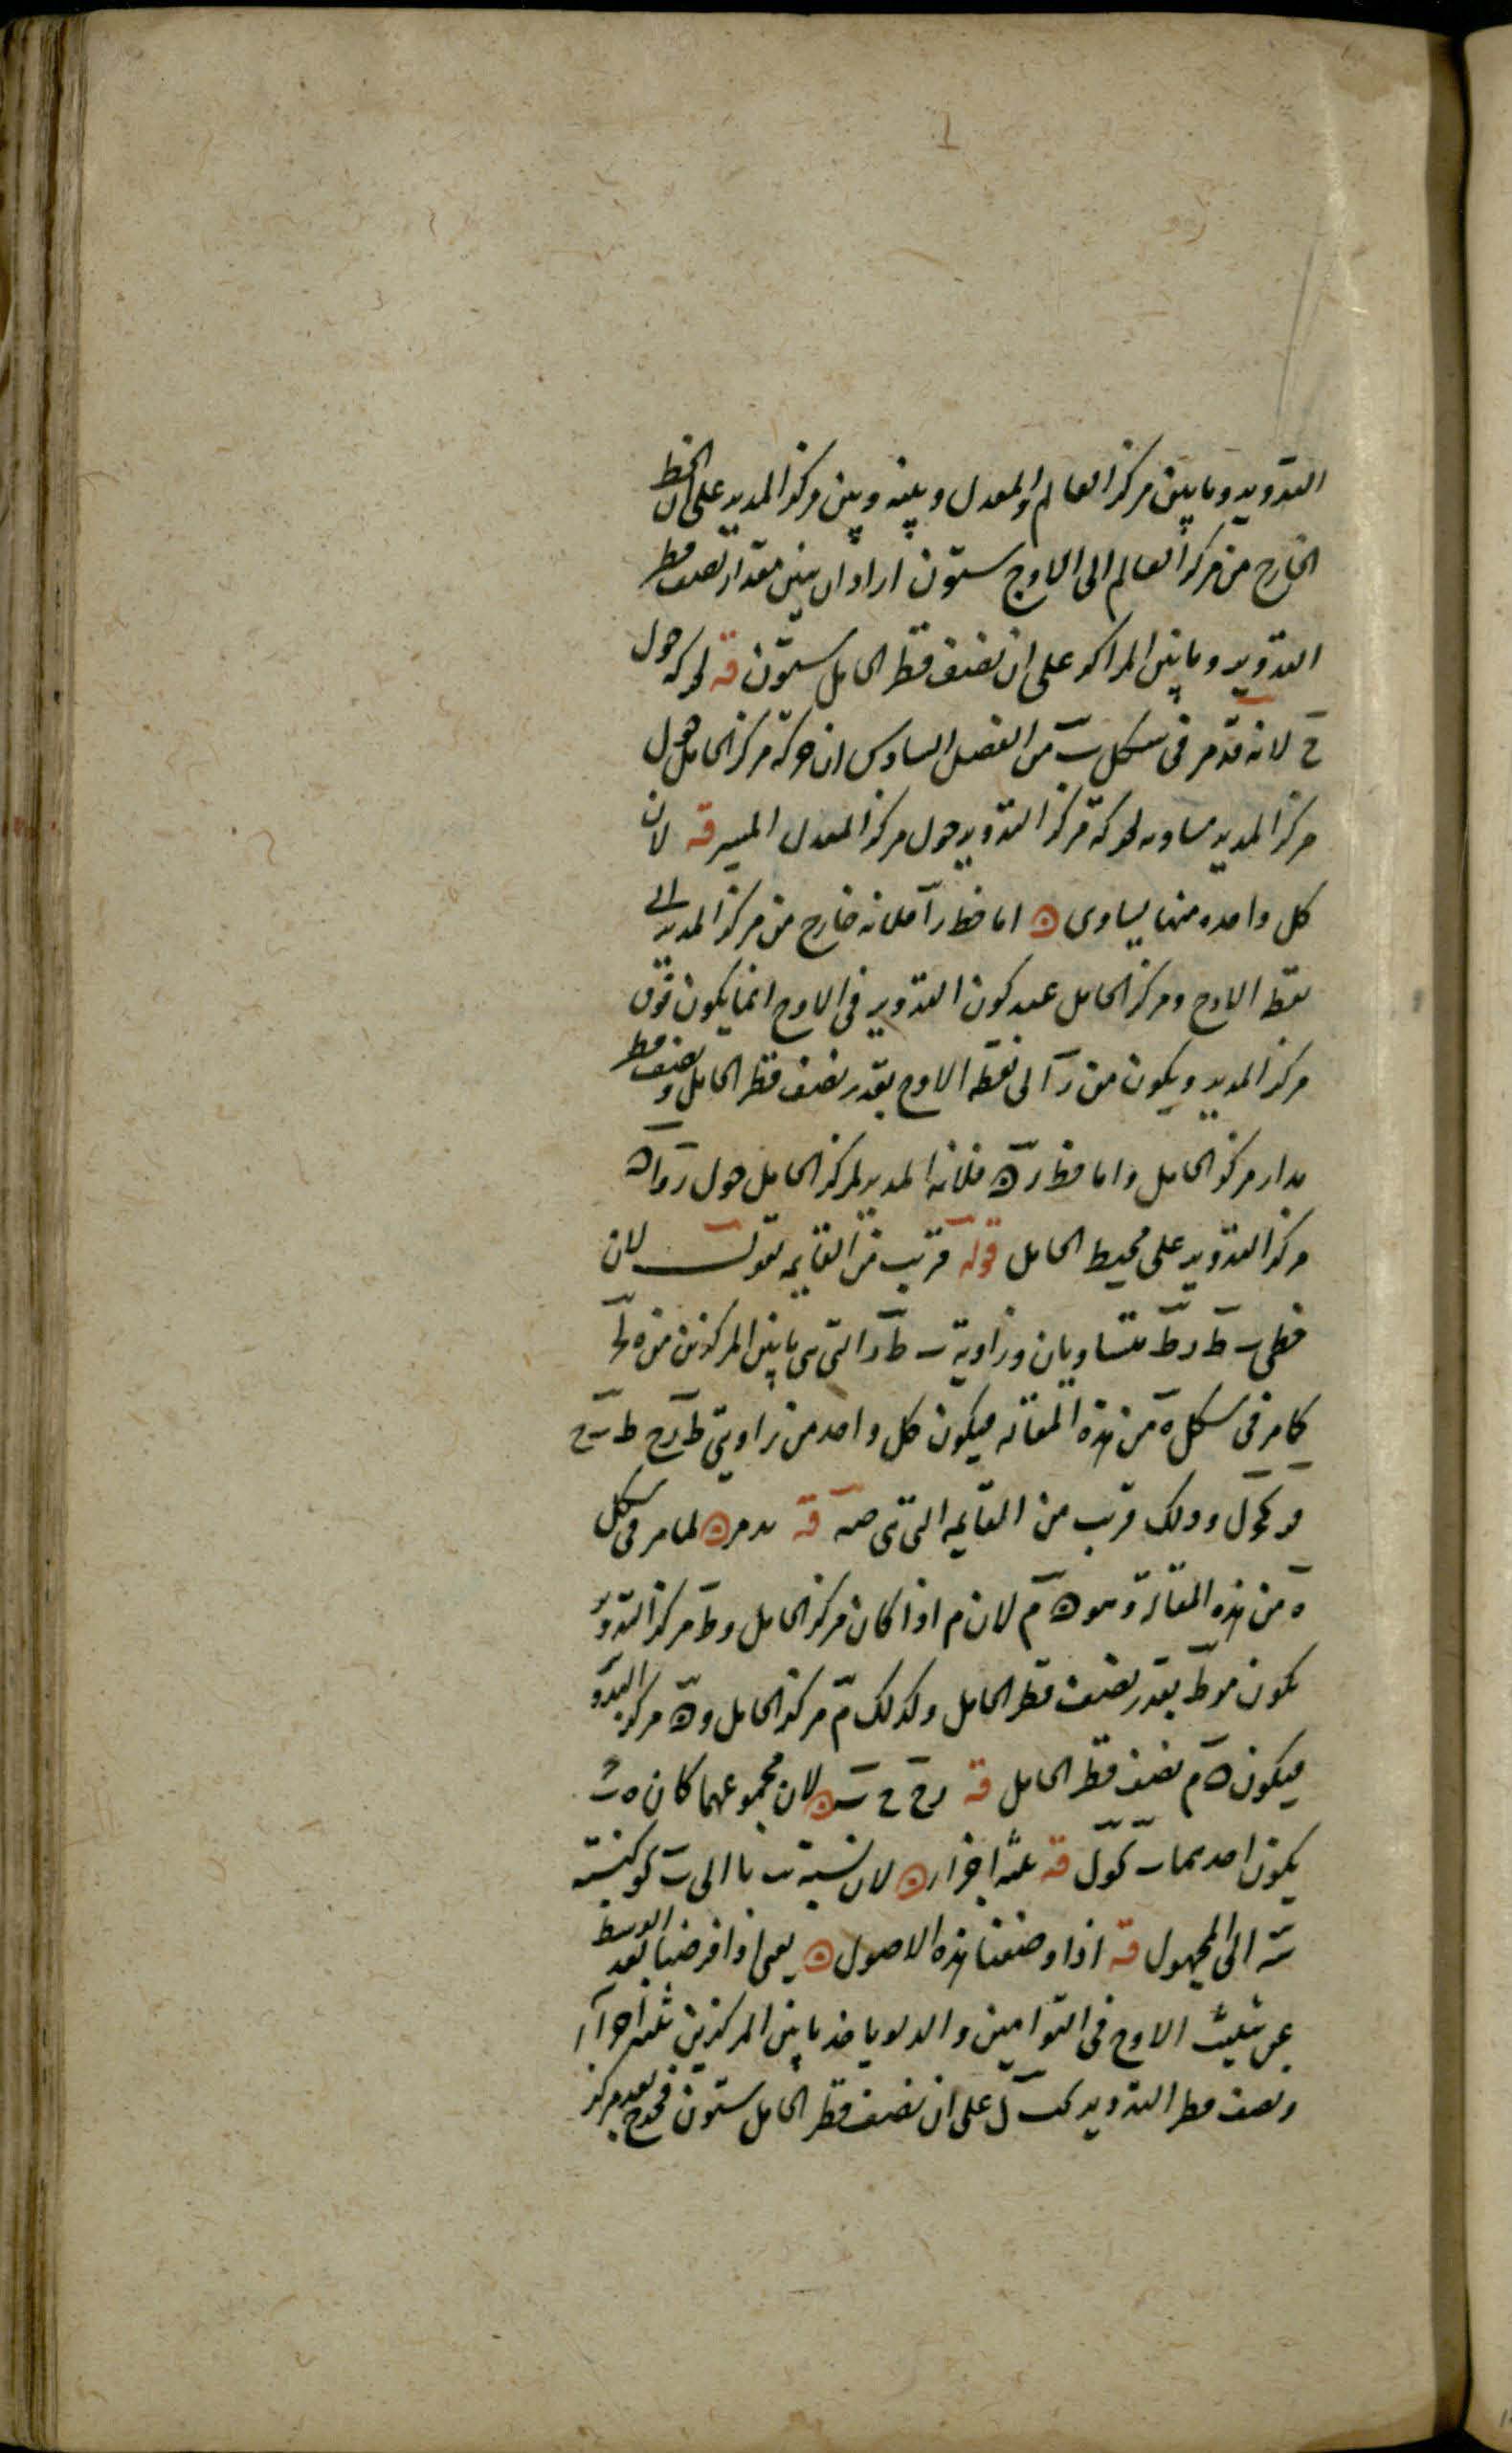 التدوير وما بين مركز العالم والمعدل وبينه وبين مركز المدير على ان الخط
الخارج من مركز العالم الى الاوج ستون اراد ان يبين مقدار نصف قطر
التدوير وما بين المراكز على ان نصف قطر الحامل ستون قه لحركة حول
ح لانه قد مر فى شكل ب من الفصل السادس ان حركة مركز الحامل حول
مركز المدير مساويه لحركة مركز التدوير حول مركز المعدل المسير قه لان
كل واحده منها يساوى ه اما خط ر آ فلانه خارج من مركز المدير الى
نقطة الاوج ومركز الحامل عند كون التدوير فى الاوج انما يكون فوق
مركز المدير ويكون من ر الى نقطة الاوج بقدر نصف قطر الحامل ونصف قطر
مدار مركز الحامل واما خط ر ه فلانه المدير لمركز الحامل حول ر و ا ه
مركز التدوير على محيط الحامل قوله قريب من القايمه نقول لان
خطى ب ط ر ط متساويان وزاوية ب ط ر التى هى ما بين المركزين من
كما مر فى شكل ه من هذه المقاله فيكون كل واحد من زاويتى ط ر ح ط ب ح
وذلك قريب من القايمه التى هى صه قه ه لما مر فى شكل
ه من هذه المقالة وهو ه م لان م اذا كان مركز الحامل و ط مركز التدوير
يكون م و ط بقدر نصف قطر الحامل وكذلك م مركز الحامل و ه مركز التدوير
فيكون ه م نصف قطر الحامل قه ر ح ح ب ه لان مجموعهما كان
يكون احدهما قه ثلثه اجزا ه لان نسبة الى كنسبة
الى المجهول قه اذا وضعنا هذه الاصول ه يعنى اذا فرضنا بعد الوسط
عن تثليث الاوج فى التوامين والدلو ياخذ ما بين المركزين ثلثه اجزآ
ونصف قطر التدوير كب ل على ان نصف قطر الحامل ستون فخرج بعد مركز